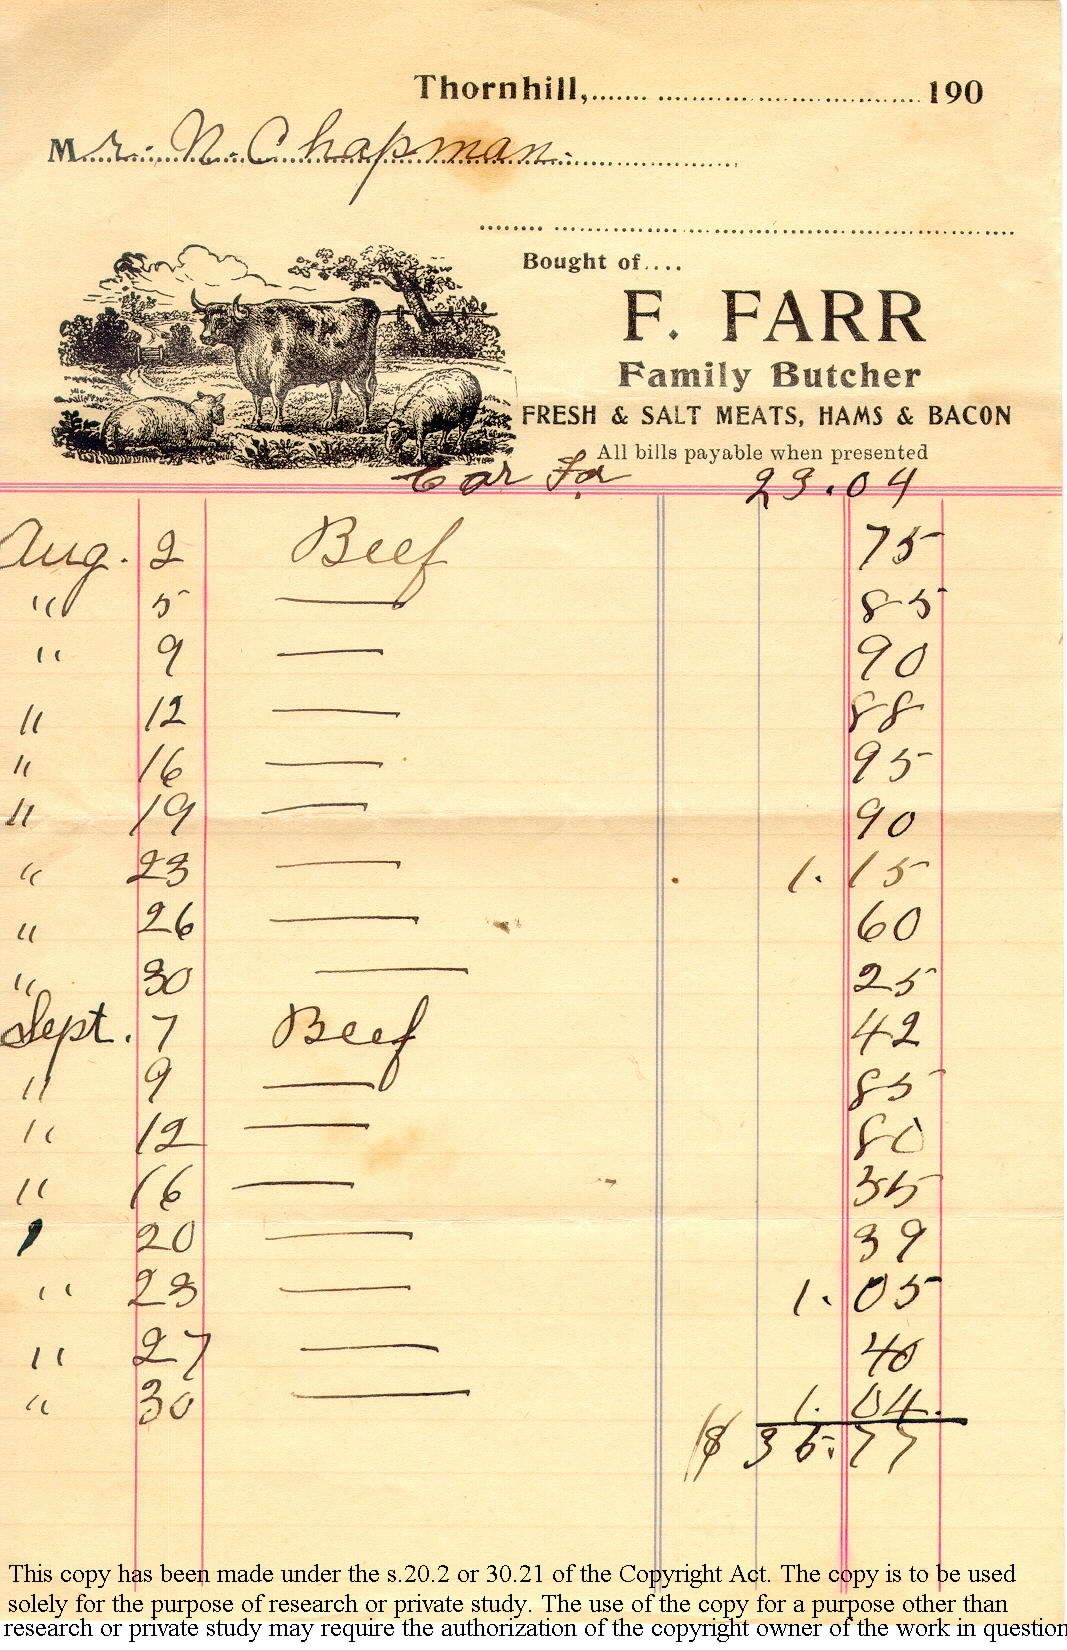 Thornhill,........................................190
Mr. N. Chapman.
Bought of....
F. FARR
Family Butcher
FRESH & SALT MEATS, HAMS & BACON
All bills payable when presented
Car Fo 23.04
Aug. 2 Beef 75
" 5 — 85
" 9 — 90
" 12 — 88
" 16 — 95
" 19 — 90
" 23 — 1.15
" 26 — 60
" 30 — 25
Sept. 7 Beef 42
" 9 — 85
" 12 — 80
" 16 — 55
" 20 — 39
" 23 — 1.05
" 27 — 40
" 30 — 1.04.
$ 35.77
This copy has been made under the s.20.2 or 30.21 of the Copyright Act. The copy is to be used
solely for the purpose of research or private study. The use of the copy for a purpose other than
research or private study may require the authorization of the copyright owner of the work in question